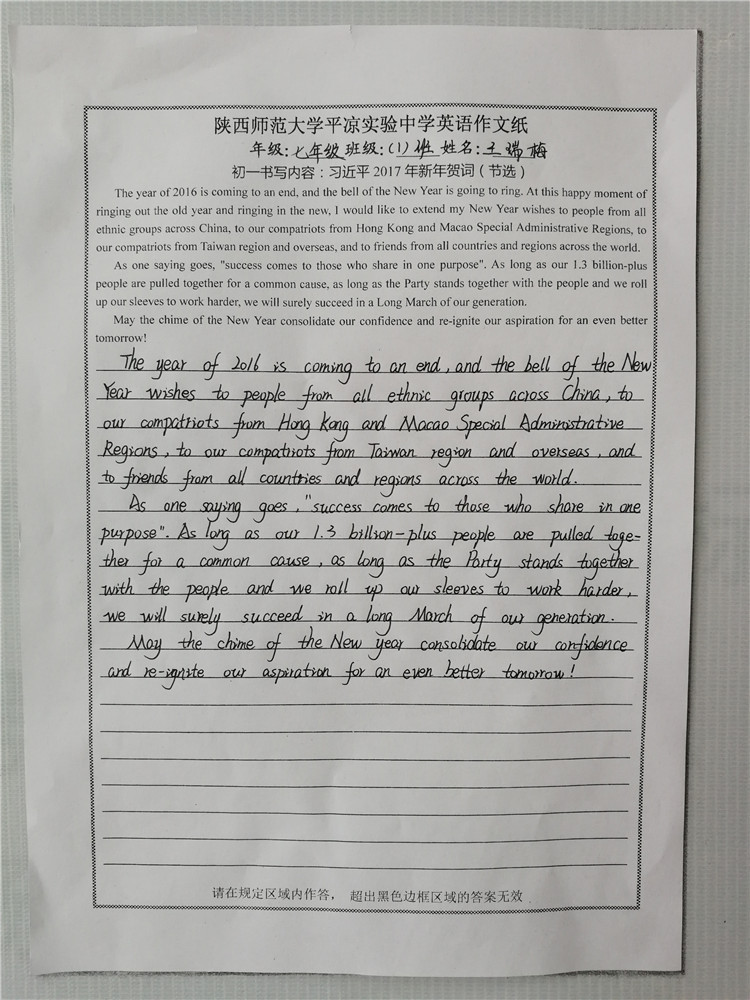 陕西师范大学平凉实验中学英语作文纸
年级:七年级班级:(1)班 姓名:王瑞梅
初一书写内容：习近平 2017 年新年贺词（节选）
The year of 2016 is coming to an end, and the bell of the New Year is going to ring. At this happy moment of
ringing out the old year and ringing in the new, I would like to extend my New Year wishes to people from all
ethnic groups across China, to our compatriots from Hong Kong and Macao Special Administrative Regions, to
our compatriots from Taiwan region and overseas, and to friends from all countries and regions across the world.
As one saying goes, "success comes to those who share in one purpose". As long as our 1.3 billion-plus
people are pulled together for a common cause, as long as the Party stands together with the people and we roll
up our sleeves to work harder, we will surely succeed in a Long March of our generation.
May the chime of the New Year consolidate our confidence and re-ignite our aspiration for an even better
tomorrow!
The year of 2016 is coming to an end, and the bell of the New
Year wishes to people from all ethnic groups across China, to
our compatriots from Hong Kong and Macao Special Administrative
Regions, to our compatriots from Taiwan region and overseas, and
to friends from all countries and regions across the world.
As one saying goes, "success comes to those who share in one
purpose". As long as our 1.3 billion-plus people are pulled toge-
ther for a common cause, as long as the Party stands together
with the people and we roll up our sleeves to work harder,
we will surely succeed in a long March of our generation.
May the chime of the New year consolidate our confidence
and re-ignite our aspiration for an even better tomorrow!
请在规定区域内作答， 超出黑色边框区域的答案无效